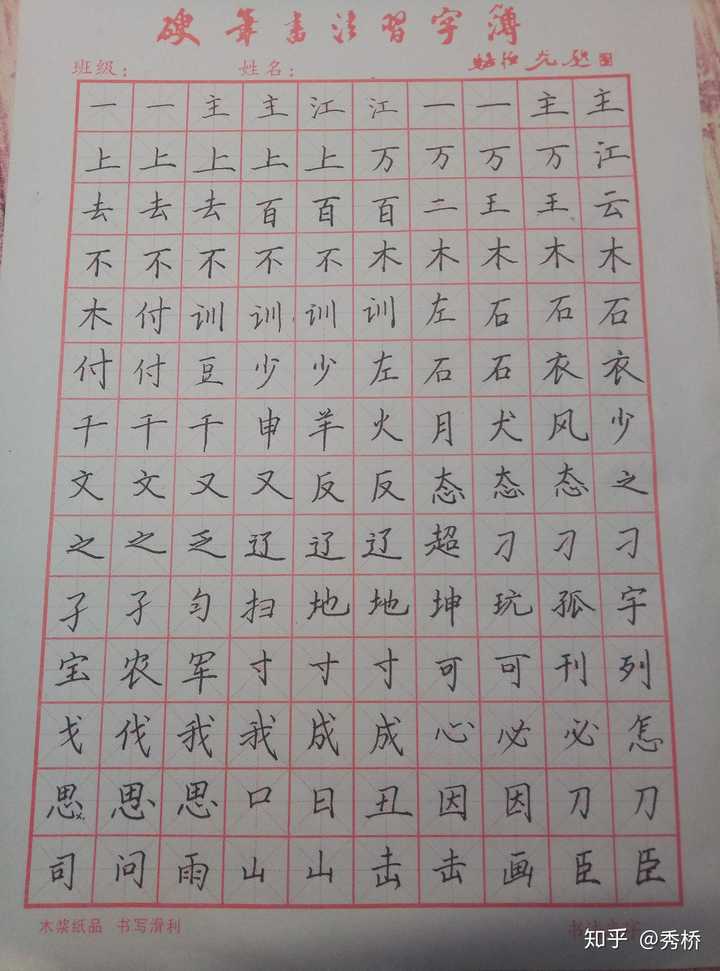 硬笔书法習字簿
班级： 姓名：
一一主主江江一一主主
上上上上上万万万万江
去去去百百百二王王云
不不不不不木木木木木
木付训训训训左石石石
付付豆少少左石石衣衣
干干干申羊火月犬风少
文文又又反反态态态之
之之乏辽辽辽超刁刁刁
孑孑匀扫地地坤玩孤宇
宝农军寸寸寸可可刊列
戈伐我我成成心必必怎
思思思口日丑因因刀刀
司问雨山山击击画臣臣
木浆纸品 书写滑利
知乎 @秀桥